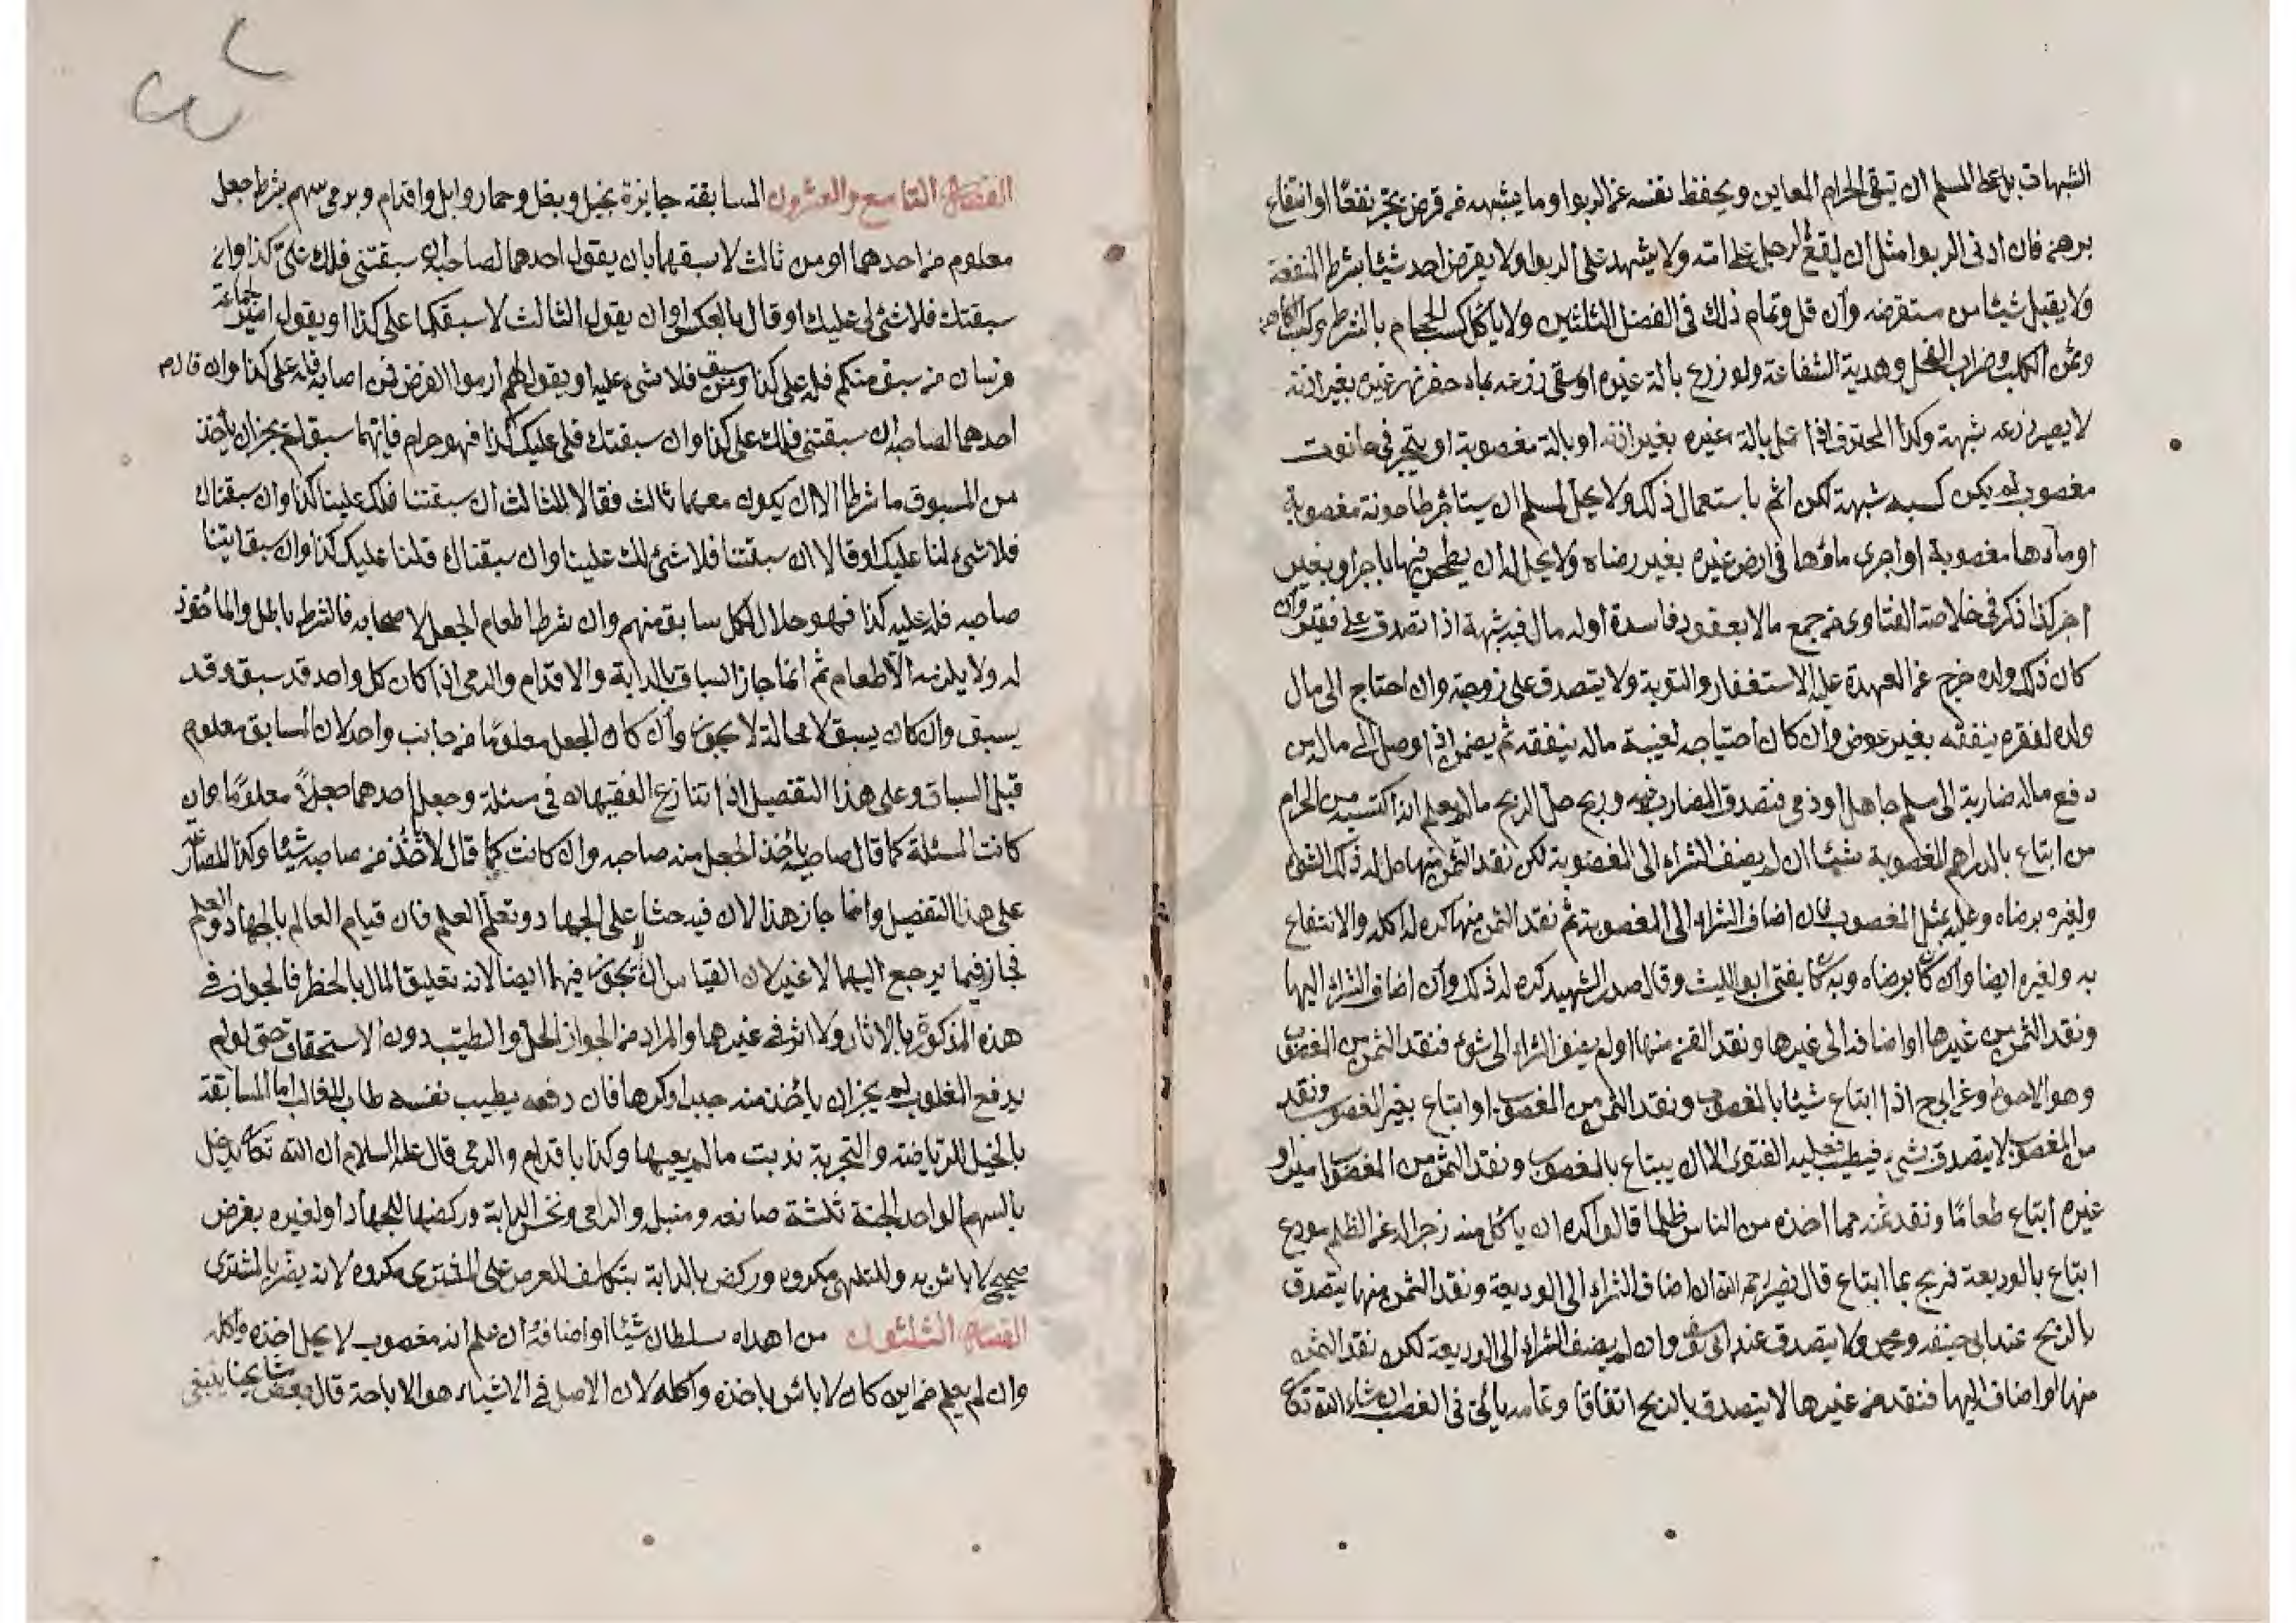 الشبهات بل على المسلم ان يتقى الحرام المعاين ويحفظ نفسه عن الربوا وما يشبهه من قرض يجر نفعًا او انتفاع
برهن فان ادنى الربوا مثل ان يقع الرجل على امته ولا يشهد على الربوا ولا يقرض احد شيئا بشرط المنفعة
ولا يقبل شيئا من مستقرضه وان قل وتمام ذلك فى الفصل الثلثين ولا ياكل كسب الحجام بالشرط وكسب الكاهن
وثمن الكلب وضراب الفحل وهدية الشفاعة ولو زرع بالة غيره او سقى زرعه بماء حفر نهر غيره بغير اذنه
لا يصير زرعه شبهة وكذا المحترف اذا عمل بالة غيره بغير اذنه او بالة مغصوبة او يتجر فى حانوت
مغصوب لم يكن كسبه شبهة لكن اثم باستعمال ذلك ولا يحل لمسلم ان يستاجر طاحونة مغصوبة
او ماءها مغصوبة او اجرى ماؤها فى ارض غيره بغير رضاه ولا يحل له ان يطحن فيها باجر او بغير
اجر كذا ذكر فى خلاصة الفتاوى من جمع مالا بعقود فاسدة او له مال فيه شبهة اذا تصدق على فقير وان
كان ذلك ولده خرج عن العهدة عليه الاستغفار والتوبة ولا يتصدق على زوجته وان احتاج الى مال
ولده لفقره ينفقه بغير عوض وان كان احتياجه لغيبة ماله ينفقه ثم يضمن اذا وصل الى ماله من
دفع ماله مضاربة الى مسلم جاهل او ذمى فتصدق المضارب فيه وربح حل الربح ما لم يعلم انه اكتسبه من الحرام
من ابتاع بالدراهم المغصوبة شيئا ان لم يضف الشراء الى المغصوبة لكن نقد الثمن منها حل له ذلك الشئ
ولغيره برضاه وعليه مثل المغصوب فان اضاف الشراء الى المغصوبة ثم نقد الثمن منها كره له اكله والانتفاع
به ولغيره ايضا وان كان برضاه وبه كان يفتى ابو الليث وقال صدر الشهيد كره له ذلك وان اضاف الشراء اليها
ونقد الثمن من غيرها او اضافه الى غيرها ونقد الثمن منها او لم يضف الشراء الى شئ فنقد الثمن من الغصب
وهو الاحوط وعن ابى ح اذا ابتاع شيئا بالمغصوب ونقد الثمن من المغصوب او ابتاع بغير المغصوب ونقد
من المغصوب لا يتصدق بشئ فيطيب فعليه الفتوى الا ان يبتاع بالمغصوب ونقد الثمن من المغصوب امير او
غيره ابتاع طعامًا ونقد ثمنه مما اخذه من الناس ظلما قالوا كره ان ياكل منه زجرا له عن الظلم مودع
ابتاع بالوديعة فربح بما ابتاع قال نصير رحمه الله ان اضاف الشراء الى الوديعة ونقد الثمن منها يتصدق
بالربح عند ابى حنيفه ومحمد ولا يتصدق عند ابى يوسف وان لم يضف الشراء الى الوديعة لكن نقد الثمن
منها او اضاف اليها فنقد من غيرها لا يتصدق بالربح اتفاقا وتمامه يأتى فى الغصب ان شاء الله تعالى
الفصل التاسع والعشرون المسابقة جايزة بخيل وبغل وحمار وابل واقدام وبرمى سهم بشرط جعل
معلوم من احدهما او من ثالث لاسبقهما بان يقول احدهما لصاحبه ان سبقتنى فلك على كذا وان
سبقتك فلا شئ لى عليك او قال بالعكس او ان يقول الثالث لاسبقكما على كذا او يقول امير جماعة
فرسان من سبق منكم فله على كذا ومن سبق فلا شئ عليه او يقول لهم ارموا الغرض فمن اصابه فله على كذا وان قال
احدهما لصاحبه ان سبقتنى فلك على كذا وان سبقتك فلى عليك كذا فهو حرام فايهما سبق لم يجز ان ياخذ
من المسبوق ما شرطا الا ان يكون معهما ثالث فقالا للثالث ان سبقتنا فلك علينا كذا وان سبقناك
فلا شئ لنا عليك او قالا ان سبقتنا فلا شئ لك علينا وان سبقناك فلنا عليك كذا وان سبق ايتنا
صاحبه فله عليه كذا فهو حلال لكل سابق منهم وان شرط اطعام الجعل لاصحابه فالشرط باطل والمأخوذ
له ولا يلزمه الاطعام ثم انما جاز السباق بالدابة والاقدام والرمى اذا كان كل واحد قد سبق وقد
يسبق وان كان يسبق لا محالة لا يجوز وان كان الجعل معلومًا من جانب واحد لان السابق معلوم
قبل السباق وعلى هذا التفصيل اذا تنازع الفقيهان فى مسئلة وجعل احدهما جعلاً معلومًا وان
كانت المسئلة كما قال صاحبه يأخذ الجعل منه صاحبه وان كانت كما قال لا أخذ من صاحبه شيئا وكذا المصارعة
على هذا التفصيل وانما جاز هذا لان فيه حثا على الجهاد وتعلم العلم فان قيام العالم بالجهاد والعلم
فجاز فيما يرجع اليهما لا غير لان القياس ان لا يجوز فيهما ايضا لانه تعليق المال بالخطر فالجواز فى
هذه المذكورة بالاثار ولا اثر فى غيرها والمراد من الجواز الحل والطيب دون الاستحقاق حتى لو لم
يدفع المغلوب لم يجز ان يأخذ منه جبرا وكرها فان دفعه بطيب نفسه طاب للغالب اما المسابقة
بالخيل للرياضة والتجربة ندبت ما لم يعيبها وكذا باقدام والرمى قال عليه السلام ان الله تعالى يدخل
بالسهم الواحد الجنة ثلثة صانعه ومنبله والرامى ونخس الدابة وركضها للجهاد او لغيره بغرض
صحيح لا باس به وللتلهى مكروه وركض بالدابة بتكلف للعرض على المشترى مكروه لانه يضر بالمشترى
الفصل الثلثون من اهداه سلطان شيئا او اضافه ان علم انه مغصوب لا يحل اخذه واكله
وان لم يعلم من اين كان لا باس باخذه واكله لان الاصل فى الاشياء هو الاباحة قال بعض مشايخنا ينبغى